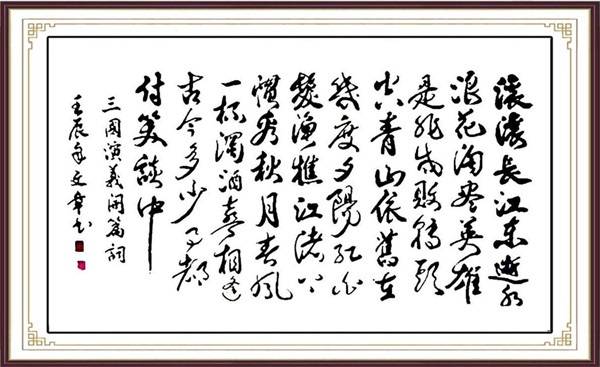 滚滚長江東逝水
浪花淘尽英雄
是非成敗轉頭
空青山依舊在
幾度夕陽紅白
髮漁樵江渚上
慣看秋月春風
一杯濁酒喜相逢
古今多少事都
付笑談中
三國演義開篇詞
壬辰年文章书